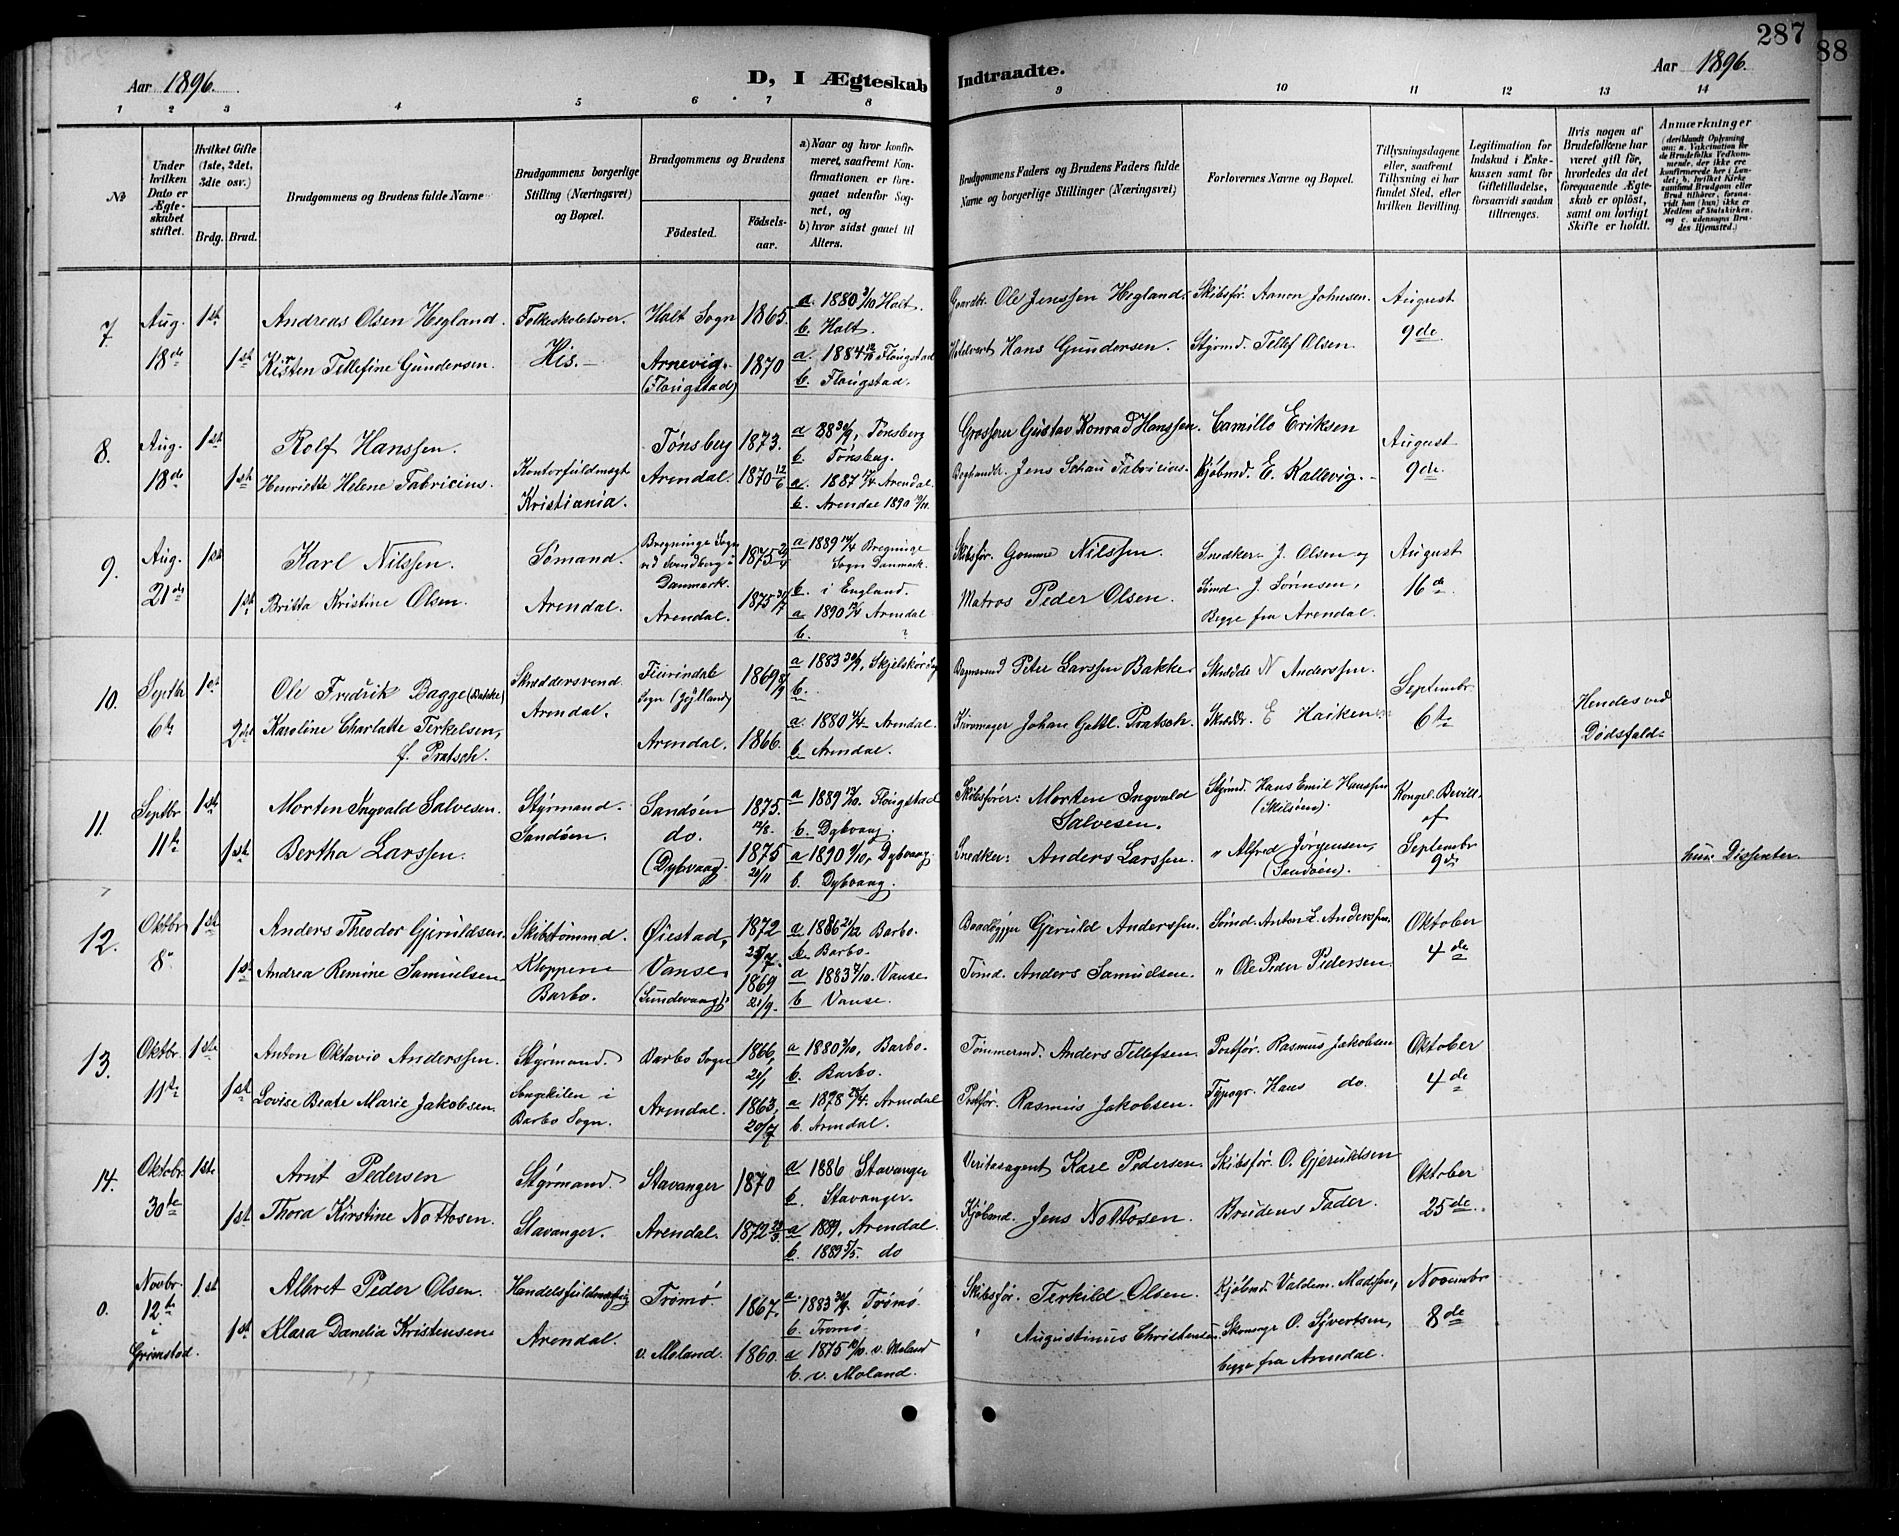 287
88
Aar 1896.
D, I Ægteskab
Indtraadte.
Aar 1896.
1 2 3 4 5 6 7 8 9 10 11 12 13 14
No
Under hvilken Dato er Ægteskabet stiftet.
Hvilket Gifte (1ste, 2det, 3die osv.)
Brdg. Brud.
Brudgommens og Brudens fulde Navne
Brudgommens borgerlige Stilling (Næringsvei) og Bopæl.
Brudgommens og Brudens
Fødested.
Fødselsaar.
a) Naar og hvor konfirmeret, saafremt Konfirmationen er foregaaet udenfor Sognet, og
b) hvor sidst gaaet til Alters.
Brudgommens Faders og Brudens Faders fulde Navne og borgerlige Stillinger (Næringsvei)
Forlovernes Navne og Bopæl.
Tillysningsdagene eller, saafremt Tillysning ei har fundet Sted, efter hvilken Bevilling.
Legitimation for Indskud i Enkekassen samt for Giftetilladelse, forsaavidt saadan tiltrænges.
Hvis nogen af Brudefolkene har været gift før, hvorledes da det foregaaende Ægteskab er opløst, samt om lovligt Skifte er holdt.
Anmærkninger
(deriblandt Oplysning om: a. Vakcination for de Brudefolks Vedkommende, der ikke ere konfirmerede her i Landet; b. hvilket Kirkesamfund Brudgom eller Brud tilhører, forsaavidt han (hun) ikke er Medlem af Statskirken, og c. udensogns Brudes Hjemsted.)
7. Aug. 18de 1st Andreas Olsen Hegland. Folkeskolelærer. His. Holt Sogn 1865. a. 1880 3/10 Holt. b. Holt. Gaardbr. Ole Jenssen Hegland. Skibsfør. Aanon Johnsen. August 9de
1st Kirsten Tellefine Gundersen. Arnevig. (Flougstad) 1870 a. 1884 Flougstad b. Flougstad. Hans Gundersen. Styrmd. Tellef Olsen.
8. Aug. 18de 1st Rolf Hanssen. Kontorfuldmægt Kristiania. Tønsberg 1873. a 88 30/9, Tønsberg b. Tønsberg. Grosserer Gustav Konrad Hanssen. Camillo Eriksen August 9de
1st Henriette Helene Fabricius. Arendal. 1870 12/6 a. 1887 17/4 Arendal. b. Arendal 1890 Boghandl. Jens Schau Fabricius. Kjøbmd. E. Kallevig.
9. Aug. 21de 1st Karl Nilssen. Sømand. Arendal. Bregninge Sogn ved Svendborg i Danmark. 1875 a 1889 14/4 Bregninge Sogn Danmark. b. i England. Skibsfør. Nilssen. Snedker J. Olsen og August 16de
1st Britta Kristine Olsen. Arendal. 1875 a 1890 13/4 Arendal b. ? Matros Peder Olsen. Sømd J. Sørensen, Begge fra Arendal.
10. Septbr 6te 1st Ole Fredrik Bagge (Bakke) Skræddersvend Arendal. Sogn (Jylland) 1869 a 1883 30/9. Skjelskør b. Peter Larssen Bakke Skrædde N Anderssen. Septembr. 6te
2det Karoline Charlotte Terkelsen, f. Pratsch. Arendal. 1866. a. 1880 Arendal. b. Arendal. Johan Gottl. Pratsch. Skrædd. E Haiken Hendes ved Dødsfald
11. Septbr 11te 1ste Morten Ingvald Salvesen. Styrmand. Sandøen. Sandøen 1875. 12/8. a 1889 13/10. Flougstad b. Dybvaag. Skibsfører: Morten Ingvald Salvesen. Styrmd. Hans Emil Hanssen (Skilsøen). Kongel. Bevill. af Septembr 9de
1ste Bertha Larssen. do. (Dybvaag) 1875 21/11 a 1890 9/10, Dybvaag b. Dybvaag. Snedker: Anders Larssen. " Alfred Jørgensen, (Sandøen). hun: Dissenter.
12. Oktbr 8 1ste Anders Theodor Gjeruldsen. Skibstømmd. Kloppene Barbo. Øiestad, 1872 25/7. a 1886 21/12 Barbo. b. Barbo. Baadbygger Gjeruld Anderssen. Sømd. Anton L. Anderssen. Oktober 4de
1ste Andrea Remine Samuelsen Vanse (Lundevaag). 1869 21/9. a 1883 7/10. Vanse b Vanse. Tømd. Anders Samuelsen. " Ole Peder Pedersen.
13. Oktbr. 11te 1ste Anton Oktavio Anderssen. Styrmand. Songekilen i Barbo Sogn. Barbo Sogn 1866, 21/1 a 1880 3/10, Barbo. b. Barbo. Tømmermd. Anders Tellefsen. Postfør. Rasmus Jakobsen Oktober 4de
1st Lovise Beate Marie Jakobsen. Arendal. 1863, 20/7 a. 1878 28/4. Arendal b. Arendal. Postfør. Rasmus Jakobsen. Typogr. Hans do.
14. Oktobr 30te 1ste Arnt Pedersen Styrmand. Stavanger. Stavanger 1870 a 1886 Stavanger b. Stavanger. Veritasagent Karl Pedersen. Skibsfør. O. Gjeruldsen Oktober 25de.
1st Thora Kirstine Nottosen. Arendal. 1872 a 1889. Arendal. b. 1889 5/5. do Kjøbmd. Jens Nottosen. Brudens Fader.
0. Novbr. 12te i Grimstad. 1st Albret Peder Olsen. Handelsfuldmægtig Arendal. Tromø. 1867. a. 1883 30/9. Tromø. b. Tromø. Skibsfør. Terkild Olsen. Kjøbmd. Valdem. Madssen, Novembr 8de
1st Klara Danelia Kristensen. v. Moland. 1860. a 1875 v. Moland b. v. Moland. " Augustinus Christensen. Skomagr O. Syvertsen, begge fra Arendal.